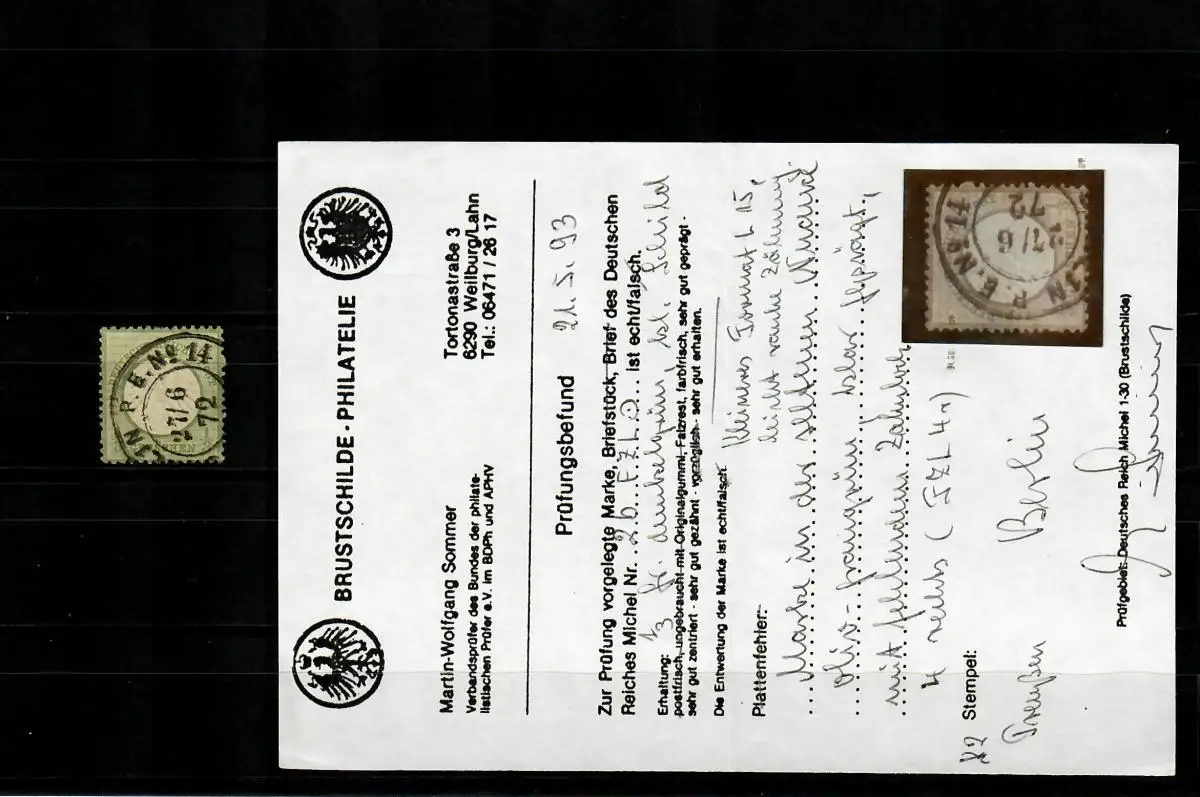 BRUSTSCHILDE - PHILATELIE
Martin-Wolfgang Sommer
Verbandsprüfer des Bundes der philate-
listischen Prüfer e.V. im BDPh und APHV
Tortonastraße 3
6290 Weilburg/Lahn
Tel.: 06471 / 26 17
Prüfungsbefund 21.5.93
Zur Prüfung vorgelegte Marke, Briefstück, Brief des Deutschen
Reiches Michel Nr. 2b FZL ist echt/falsch.
Erhaltung: 1/3 Gr. dunkelgrün, kl. Schild
postfrisch, ungebraucht mit Originalgummi, Falzrest, farbfrisch, sehr gut geprägt -
sehr gut zentriert - sehr gut gezähnt - vorzüglich - sehr gut erhalten.
Die Entwertung der Marke ist echt/falsch.
Kleineres Format L 15,
leicht rauhe Zähnung
Plattenfehler:
Marke in der seltenen Nuance
oliv-graugrün klar geprägt,
mit fehlendem Zahnloch
4 rechts (FZL 4r)
K2 Stempel:
Preußen Berlin
Prüfgebiet: Deutsches Reich Michel 1-30 (Brustschilde)
IN P. E. No 14
27/6
72
IN P. E. No 14
27/6
72